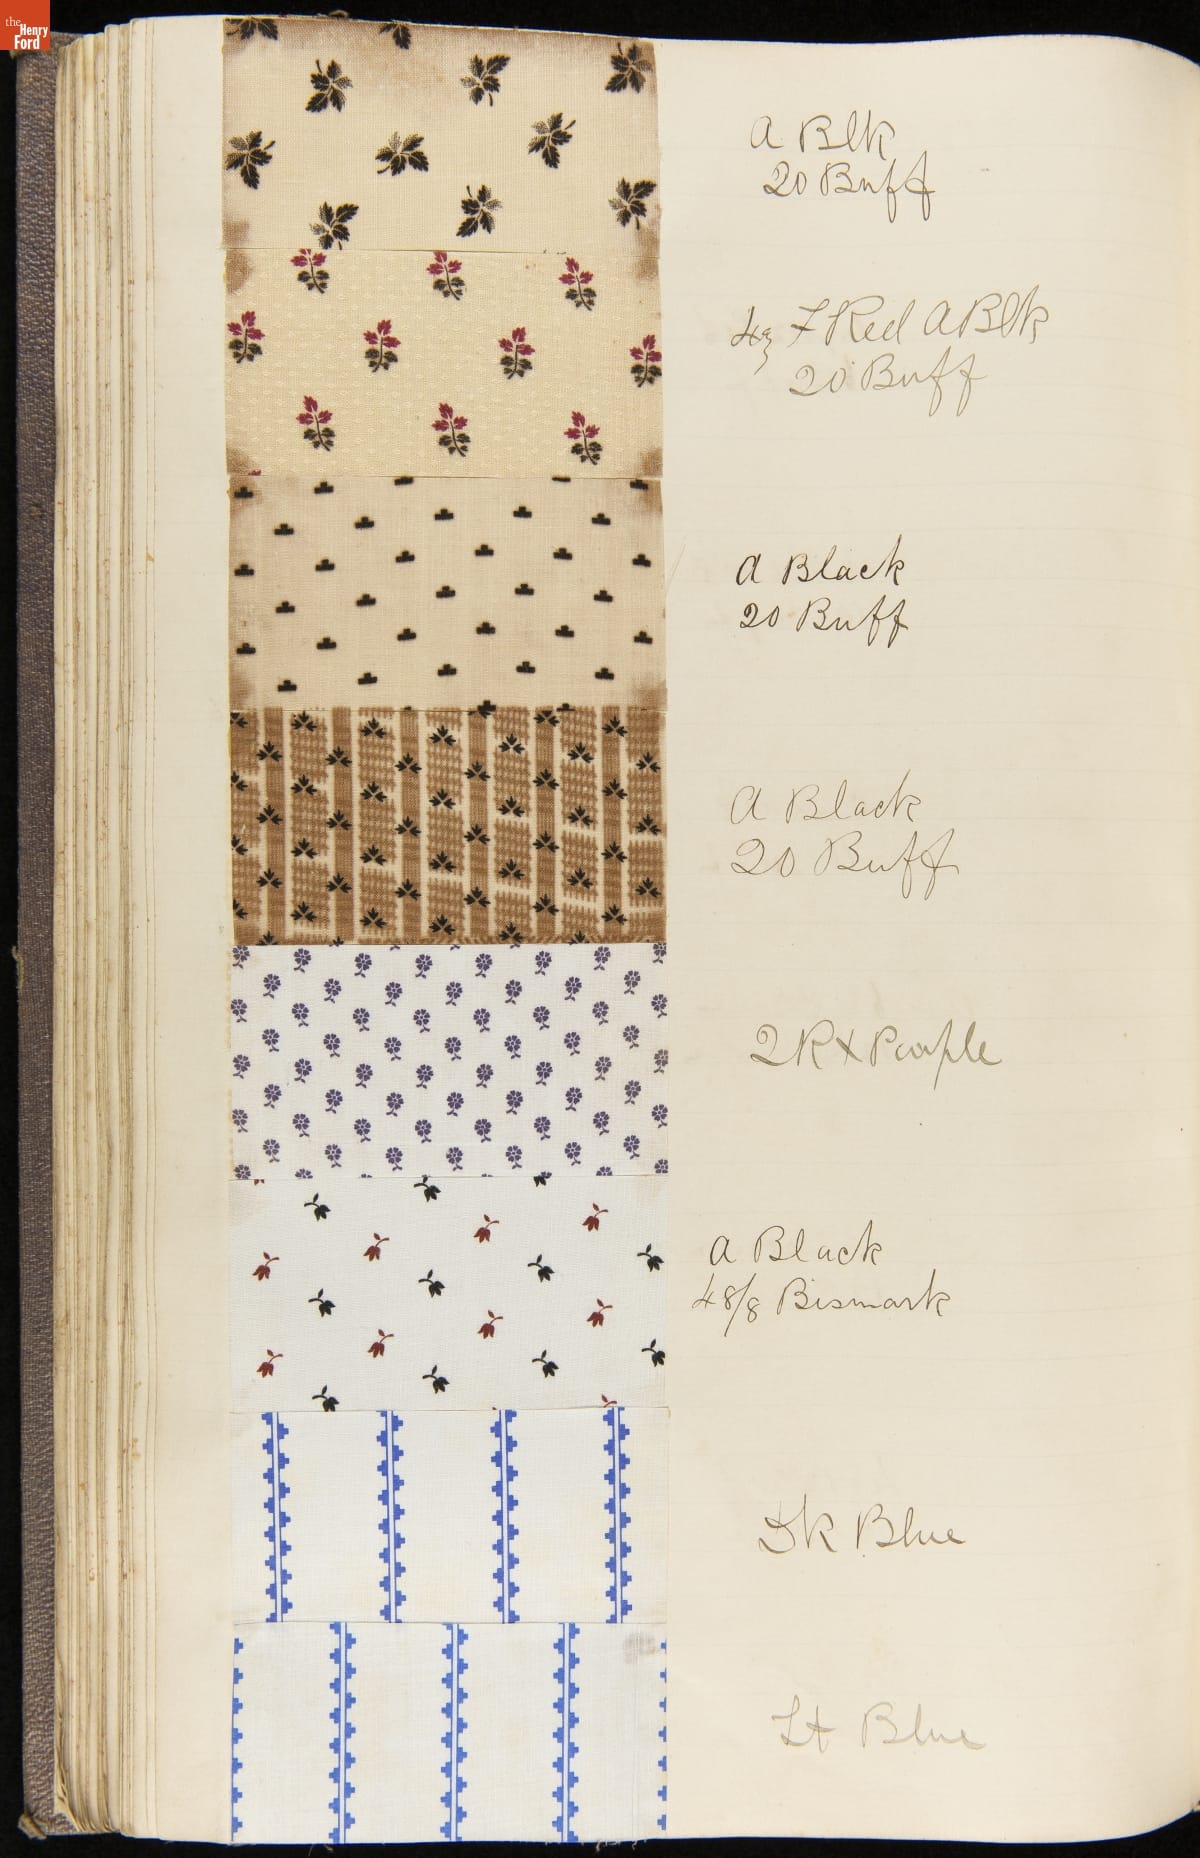 the
Henry
Ford
A Blk
20 Buff
F Red A Blk
20 Buff
A Black
20 Buff
A Black
20 Buff
2R x Purple
A Black
48/8 Bismark
Dk Blue
Lt Blue